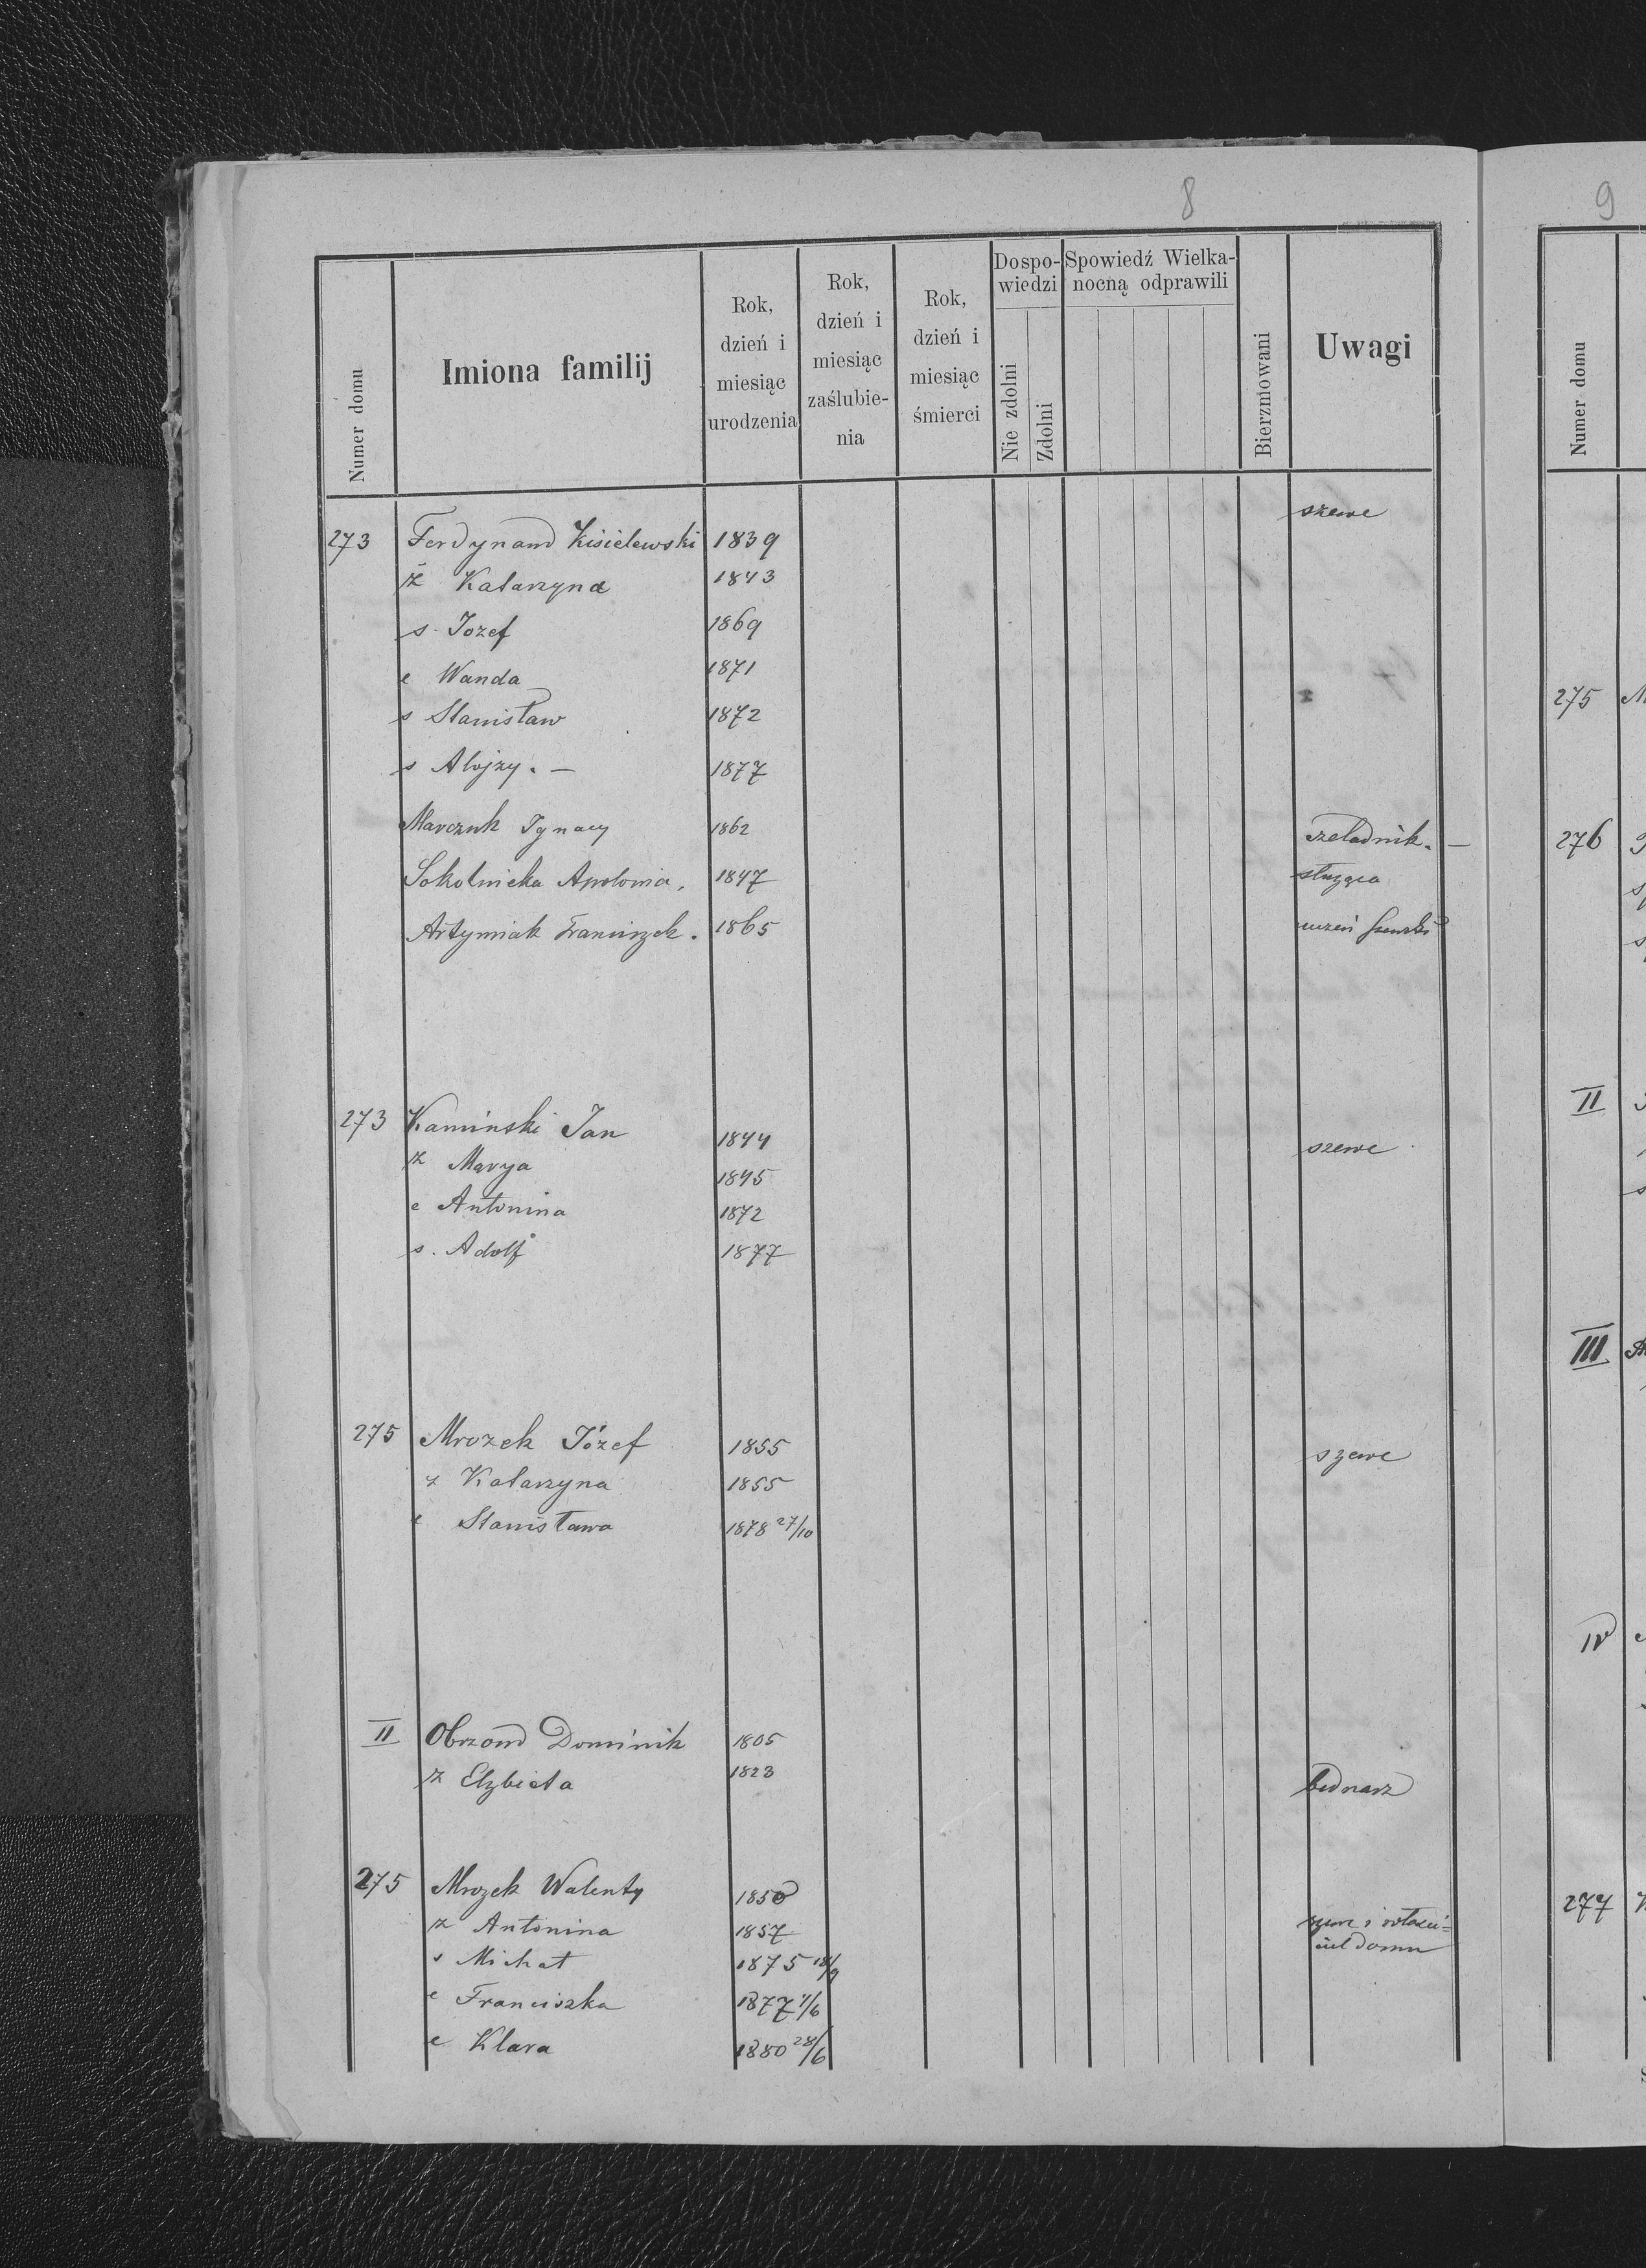 8
9
Numer domu
Imiona familij
Rok, dzień i miesiąc urodzenia
Rok, dzień i miesiąc zaślubienia
Rok, dzień i miesiąc śmierci
Dospowiedzi
Nie zdolni
Zdolni
Spowiedź Wielkanocną odprawili
Bierzmowani
Uwagi
Numer domu
273 Ferdynand Kisielewski 1839 szewc
ż Katarzyna 1843
s. Jozef 1869
c Wanda 1871
s Stanisław 1872
s Alojzy. — 1877
Marczuk Ignacy 1862 czeladnik. —
Sokolnicka Apolonia, 1847 służąca
Artymiak Franciszek. 1865 uczeń szewski
273 Kamiński Jan 1844 szewc
ż Marya 1845
c Antonina 1872
s. Adolf 1877
275 Mrozek Józef 1855 szewc
ż Katarzyna 1855
c Stanisława 1878 27/10
II Obrzond Dominik 1805
ż Elżbieta 1823 bednarz
275 Mrozek Walenty 1850
ż Antonina 1857 szewc i właści=
s Michał 1875 18/9 ciel domu
c Franciszka 1877 1/6
c Klara 1880 28/6
275
276
II
III
IV
277